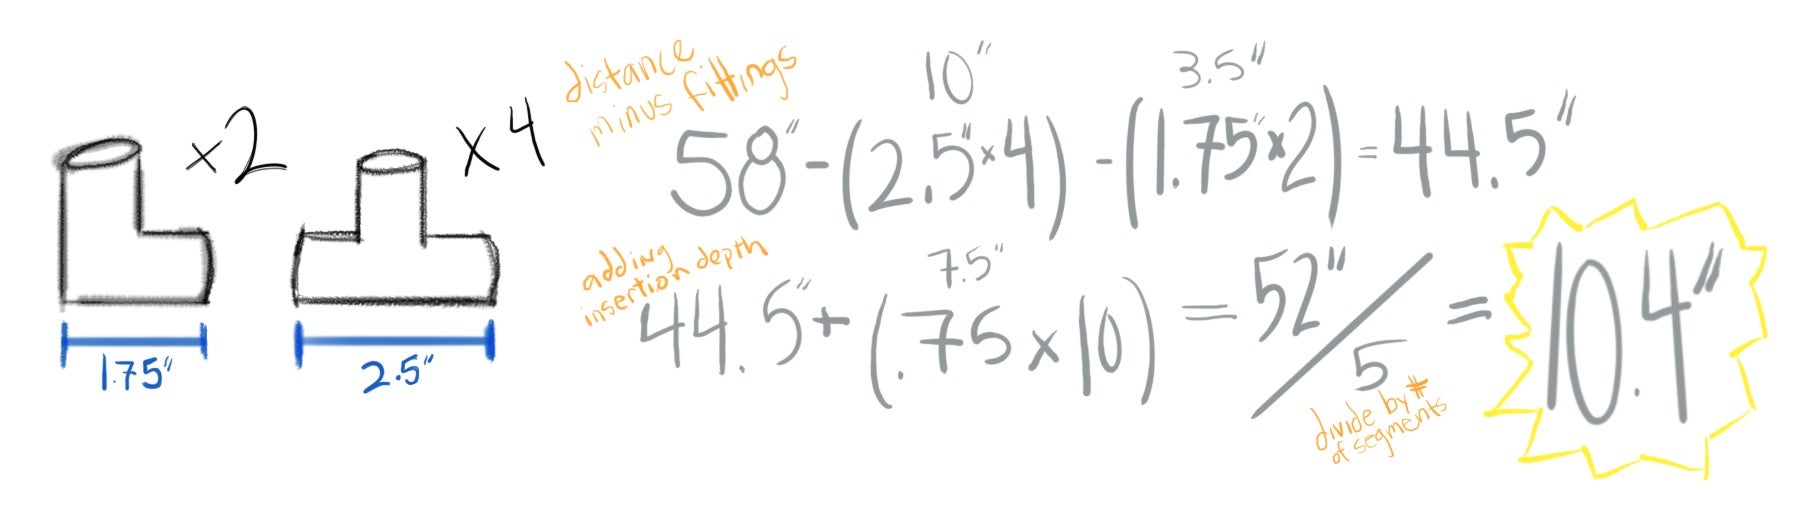 ×2
×4
1.75"
2.5"
distance
minus fittings
10"
3.5"
58" - (2.5"×4) - (1.75"×2) = 44.5"
adding
insertion depth
7.5"
44.5" + (.75 × 10) = 52" / 5 = 10.4"
divide by #
of segments